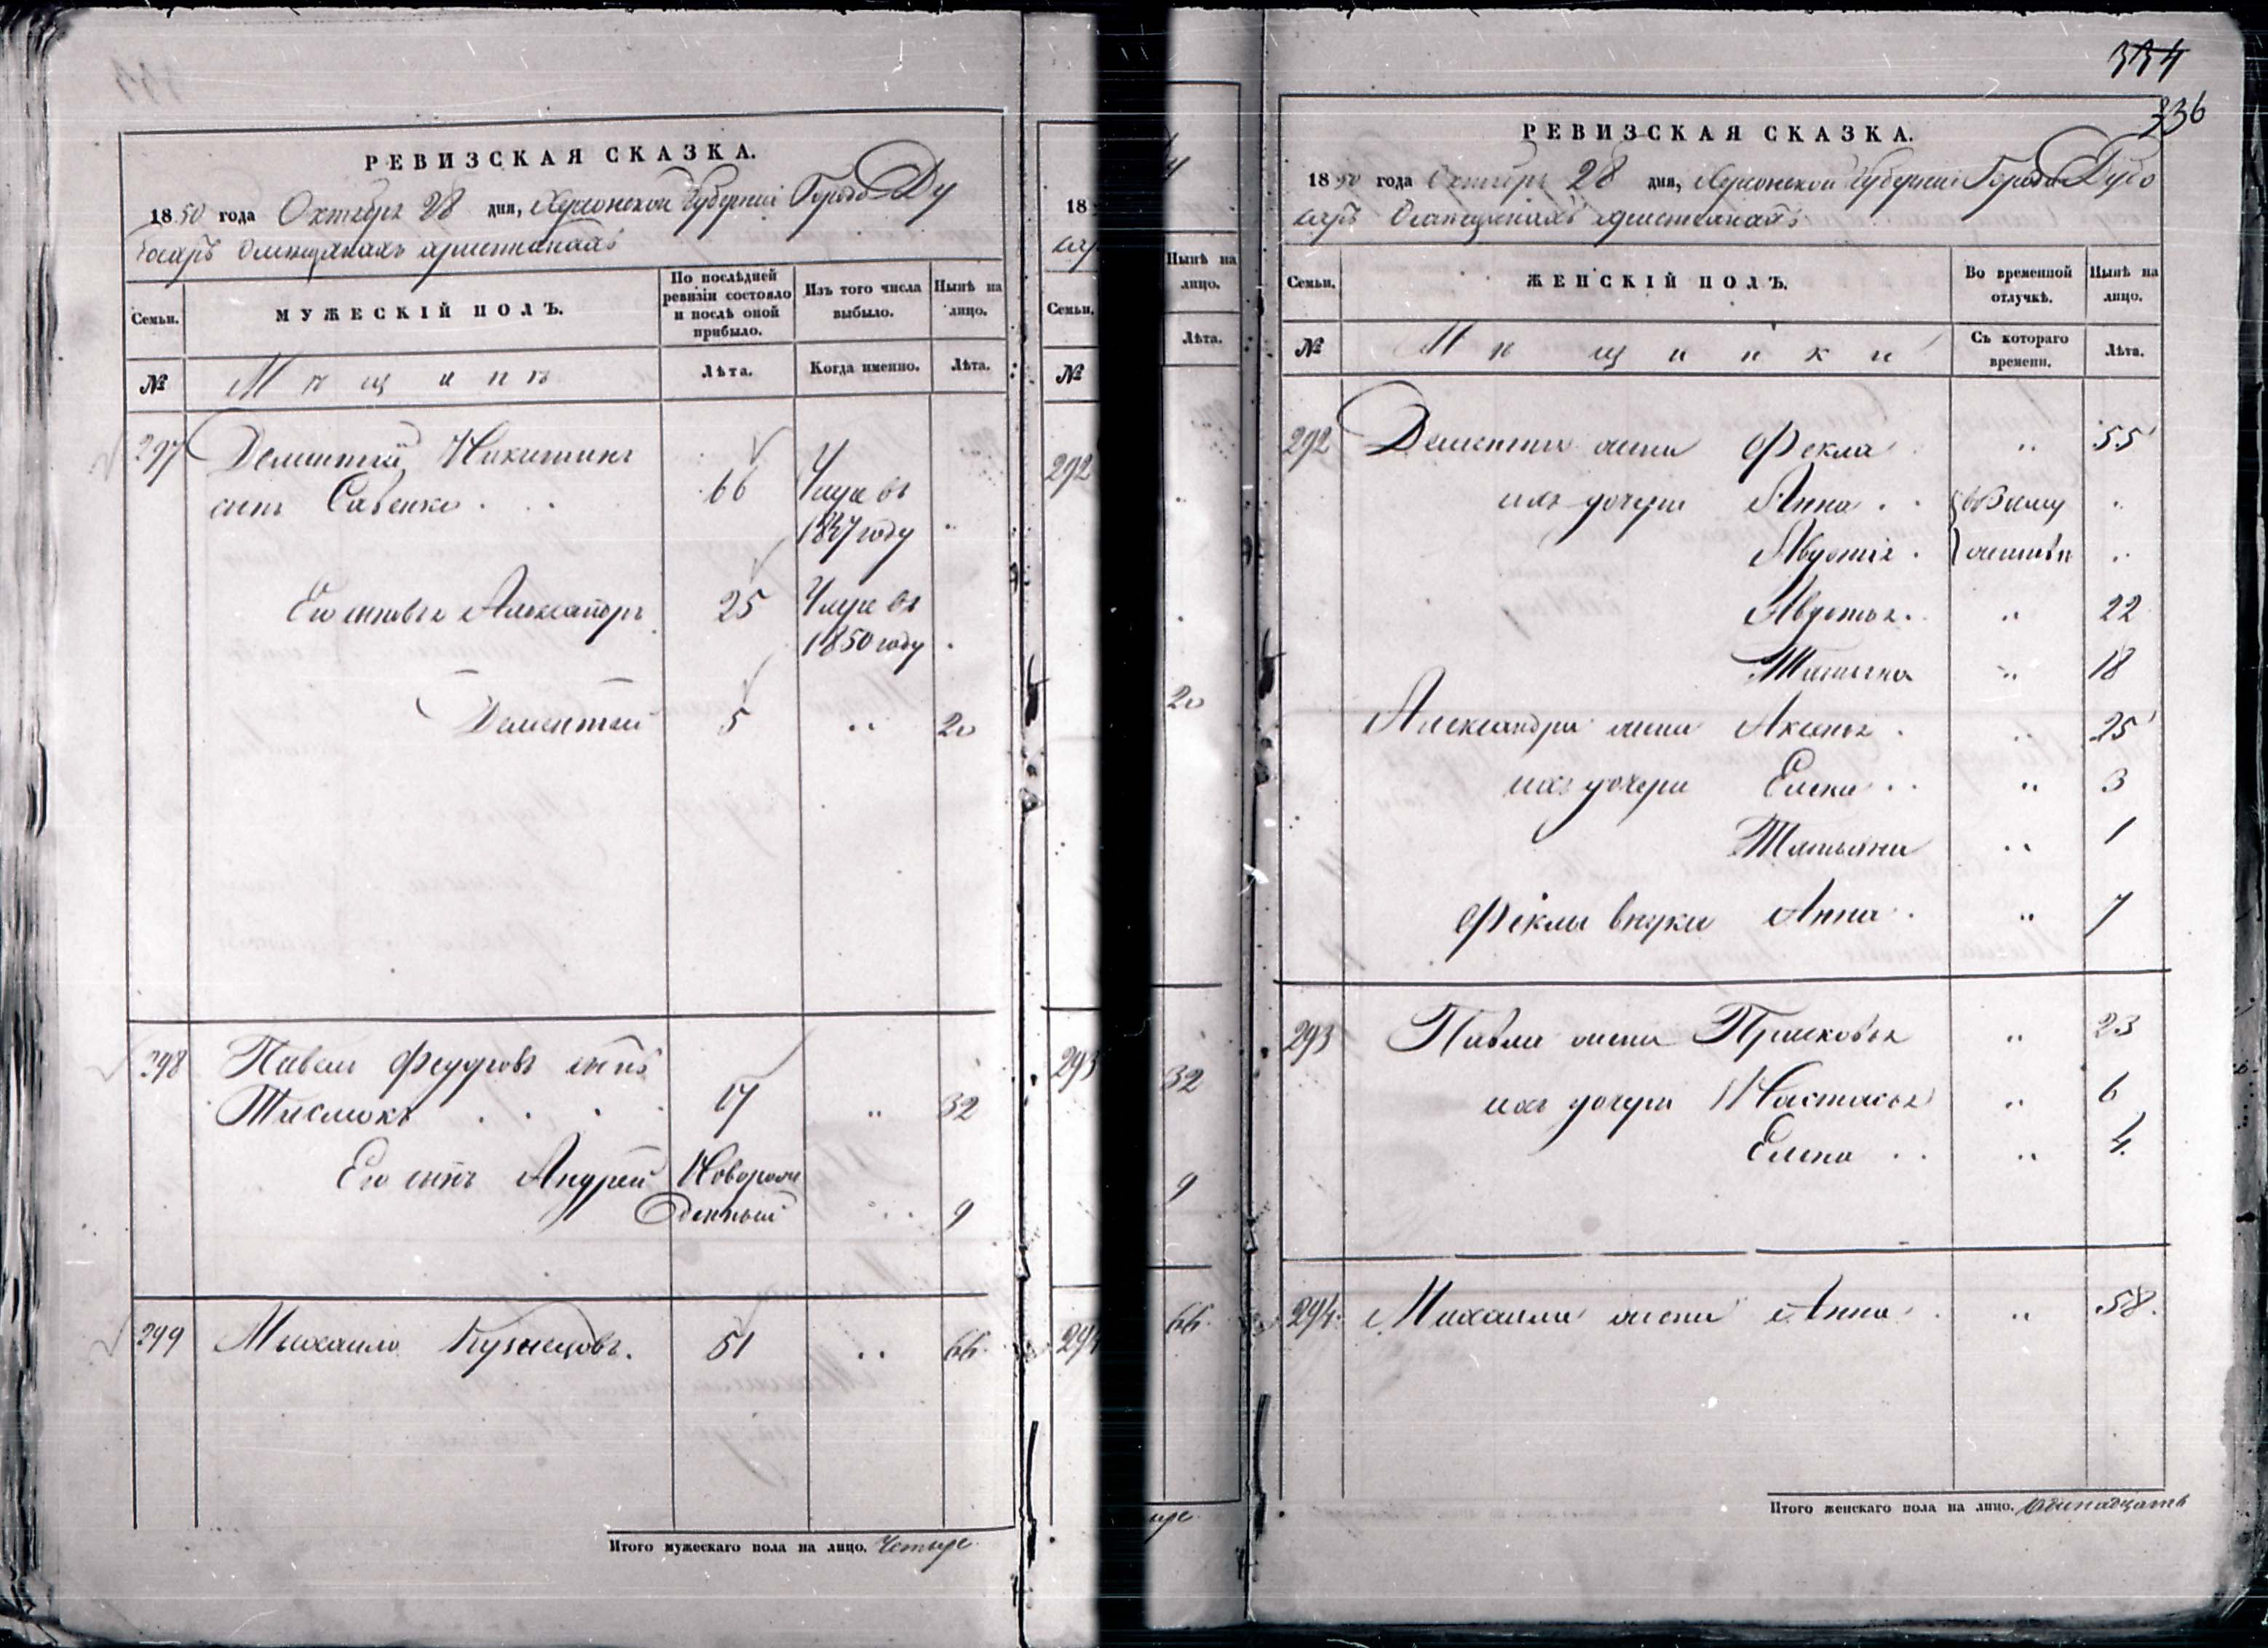 РЕВИЗСКАЯ СКАЗКА.
1850 года Октября 28 дня, Херсонской Губернiи Города Ду
босаръ Омѣщанахъ христианахъ
Семьи.
МУЖЕСКIЙ ПОЛЪ.
По послѣдней ревизiи состояло и послѣ оной прибыло.
Изъ того числа выбыло.
Нынѣ на лицо.
№
Мѣщанъ
Лѣта.
Когда именно.
Лѣта.
297 Дементiй Никитинъ
сынъ Савенко . . . 66 Умре въ
1837 году "
Его сыновья Александръ 25 Умре въ
1850 году "
Дементiй 5 " 20
298 Павелъ Федоровъ сынъ
. . . 17 " 32
Его сынъ Андрей Новорож
денный " 9
299 Михайло Кузнецовъ. 51 " 66.
Итого мужескаго пола на лицо. Четыре
18
сар
Семьи.
№
292
293
294
Нынѣ на лицо.
Лѣта.
20
32
9
66.
ыре
334
336
РЕВИЗСКАЯ СКАЗКА.
1850 года Октября 28 дня, Херсонской Губернiи Города Дубо
саръ Омѣщанахъ христианахъ
Семьи.
ЖЕНСКIЙ ПОЛЪ.
Во временной отлучкѣ.
Нынѣ на лицо.
№
Мѣщанки
Съ котораго времени.
Лѣта.
292 Дементiя жена Фекла " 55
ихъ дочери Анна . . взаму "
Авдотiя . жествѣ "
Авдотья . " 22
" 18
Александра жена Аксинья . " 25
ихъ дочери Елена . . " 3
Татьяна " 1
Феклы внука Анна . " 7
293 Павла жена Прасковья " 23
ихъ дочери Настасья " 6
Елена . . " 4.
294. Михаила жена Анна . " 58.
Итого женскаго пола на лицо. Одинадцать